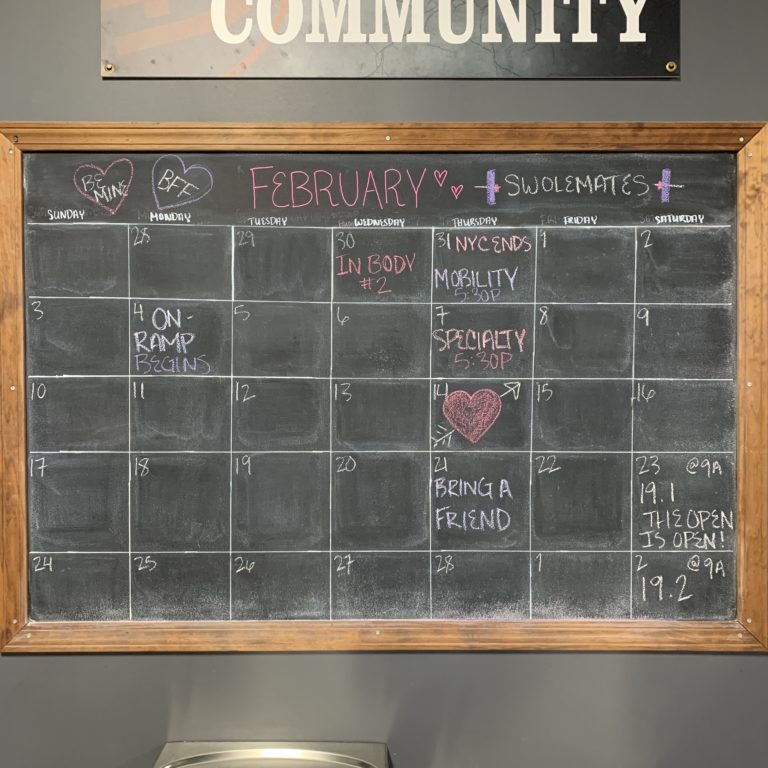 COMMUNITY
BE MINE
BFF
FEBRUARY
SWOLEMATES
SUNDAY MONDAY TUESDAY WEDNESDAY THURSDAY FRIDAY SATURDAY
28 29 30 31 NYC ENDS 1 2
IN BODY
#2
MOBILITY
5:30P
3 4 ON- 5 6 7 8 9
RAMP
BEGINS
SPECIALTY
5:30P
10 11 12 13 14 15 16
17 18 19 20 21 22 23 @9A
BRING A
FRIEND
19.1
THE OPEN
IS OPEN!
24 25 26 27 28 1 2 @9A
19.2